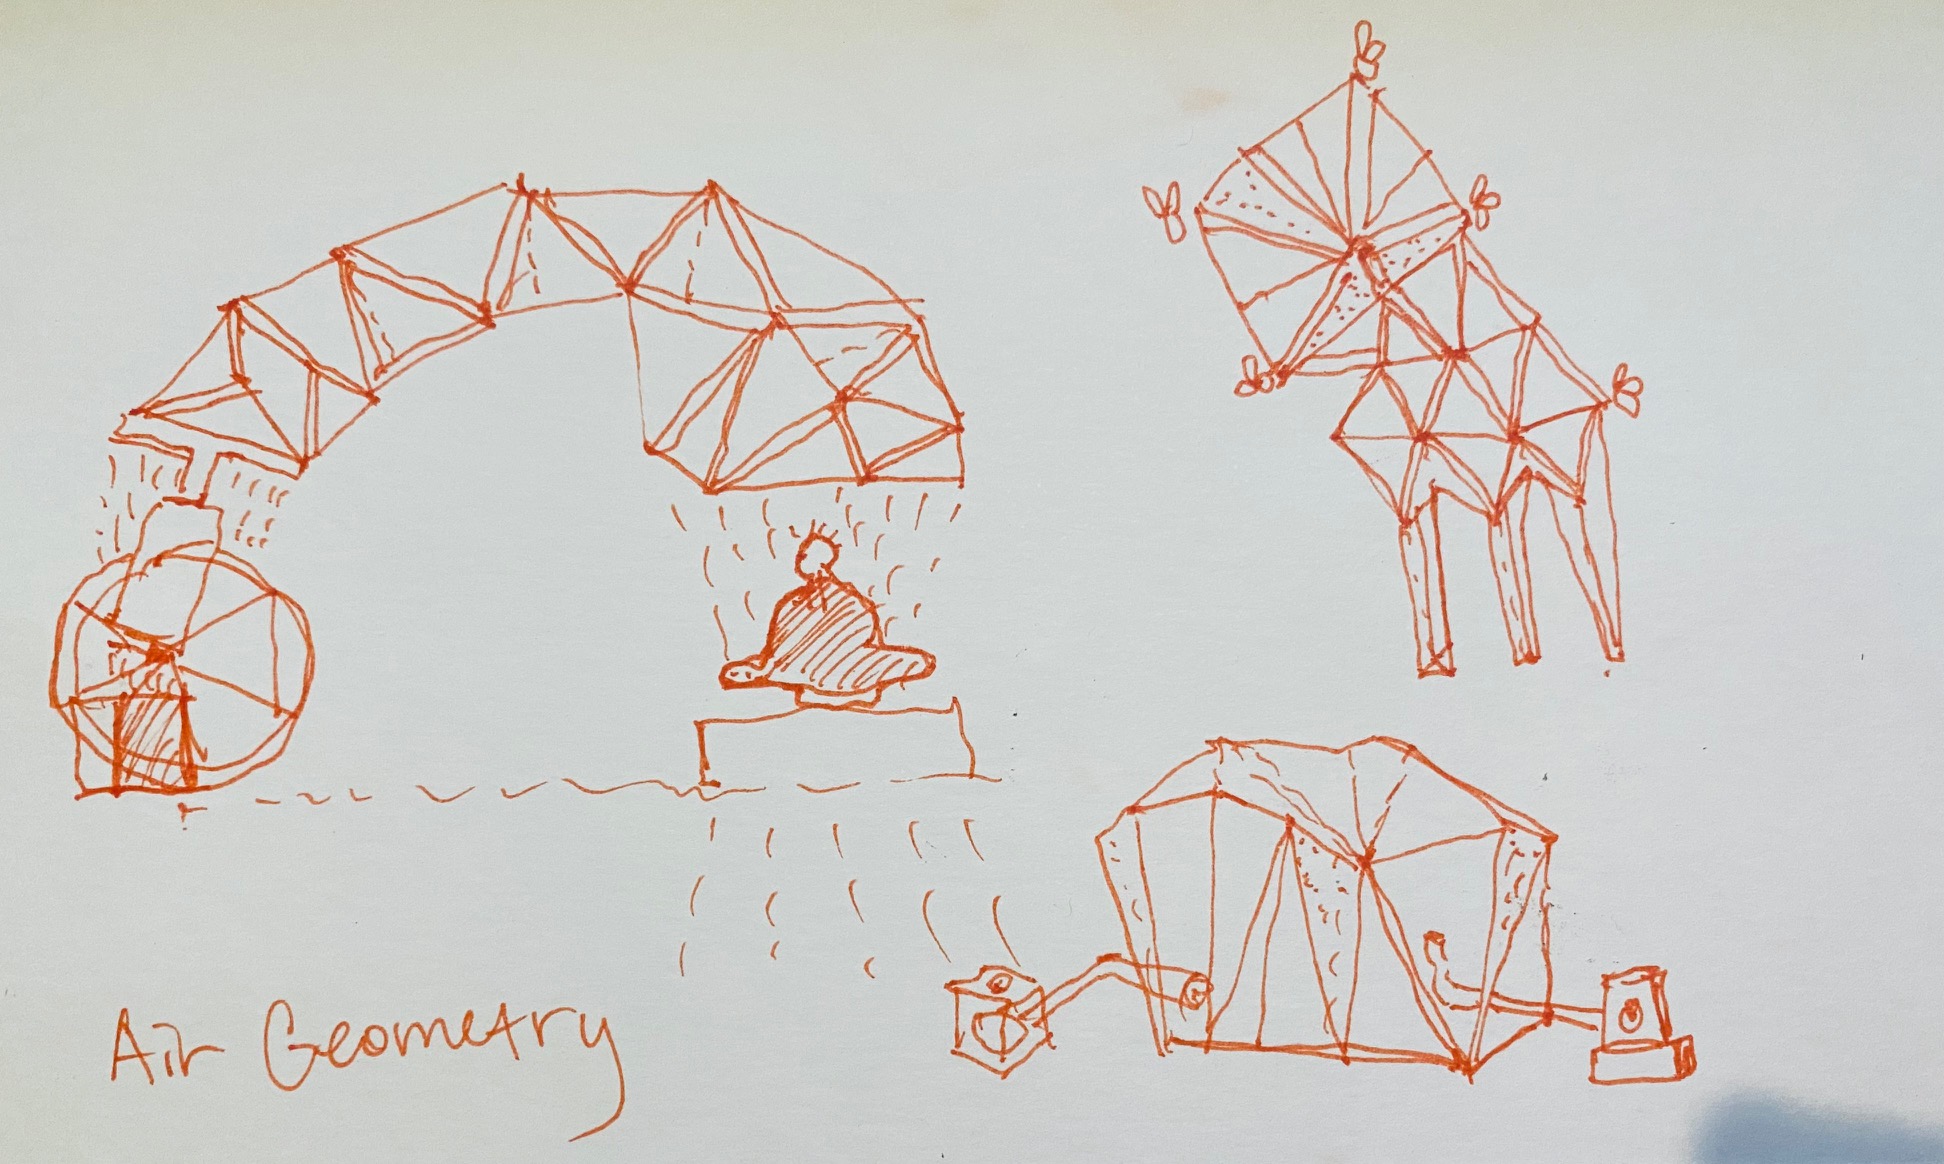 Air Geometry